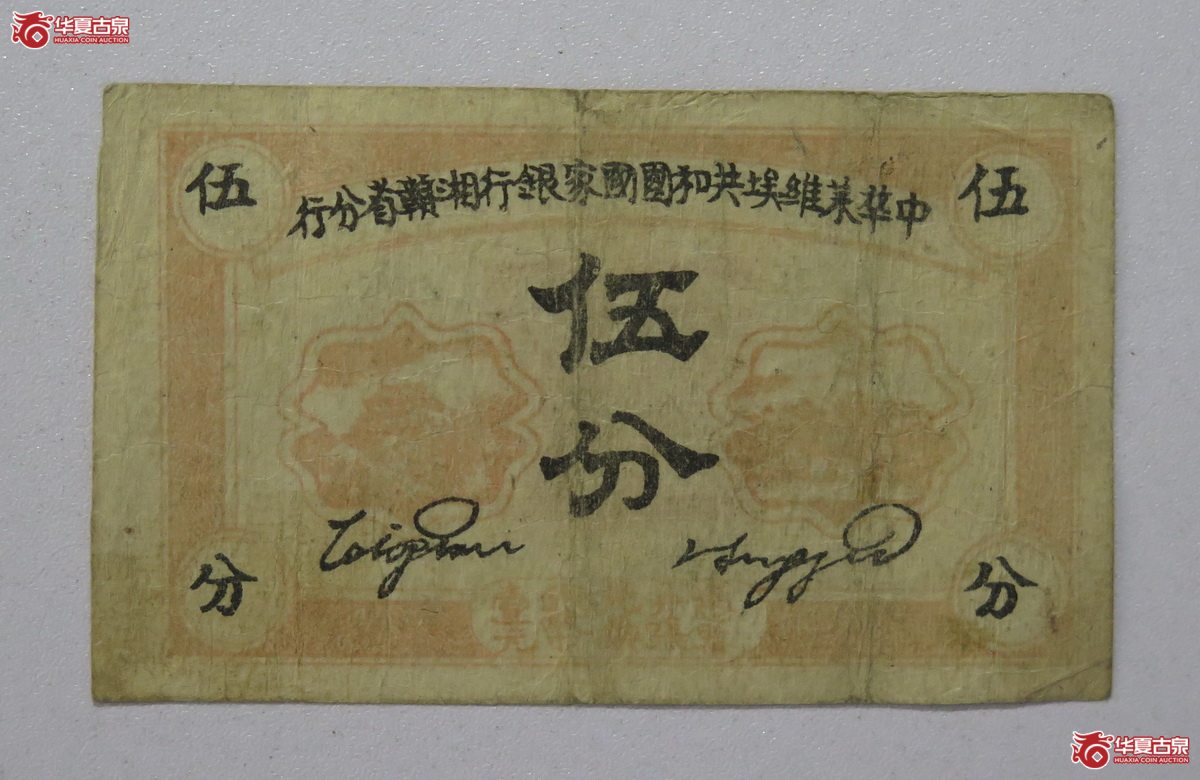 华夏古泉
HUAXIA COIN AUCTION
中華蘇維埃共和國國家銀行湘贛省分行
伍
伍
伍
分
分
分
华夏古泉
HUAXIA COIN AUCTION